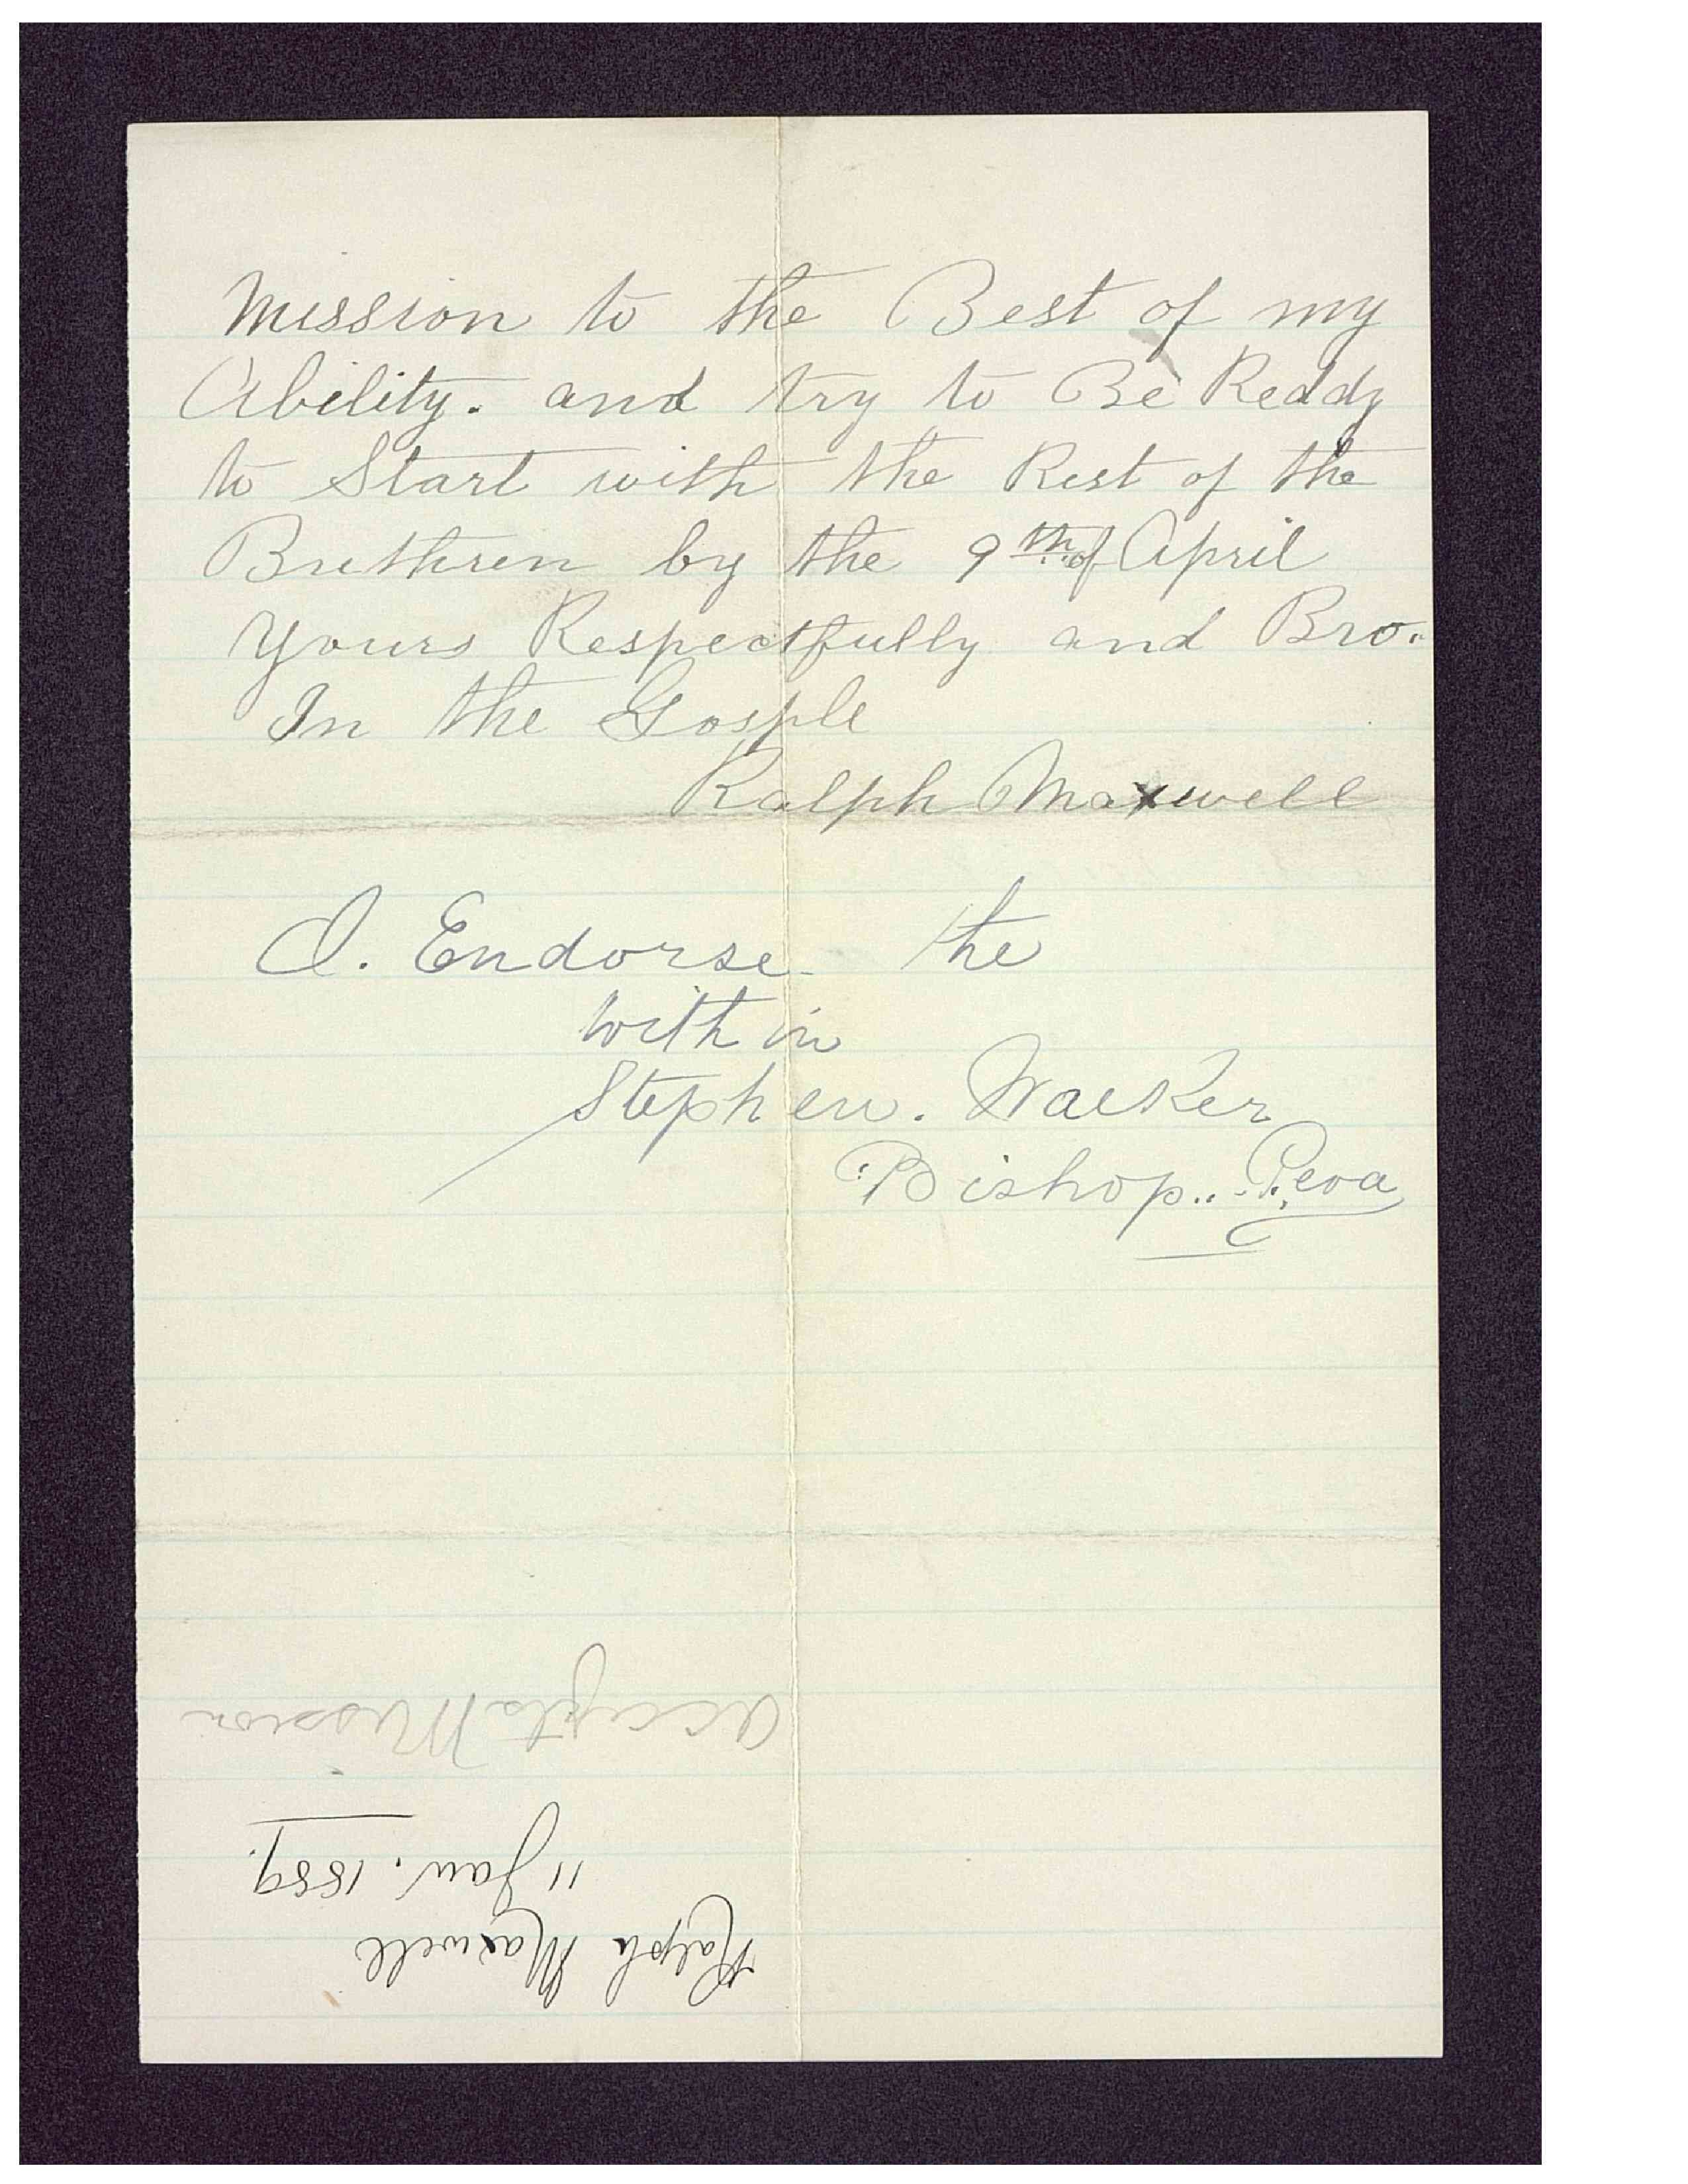 Mission to the Best of my
Ability. and try to Be Reddy
to Start with the Rest of the
Brethren by the 9th of April
Yours Respectfully and Bro.
In the Gosple
Ralph Maxwell
I. Endorse the
with in
Stephen. Walker
Bishop..
Ralph Maxwell
11 Jan. 1889.
Accepts Mission